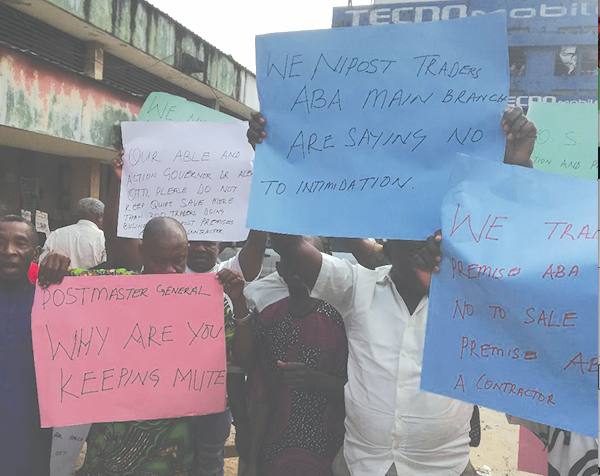 TECNO mobile
TECNO mobile
WE NIPOST TRADERS
ABA MAIN BRANCH
ARE SAYING NO
TO INTIMIDATION.
WE
OUR ABLE AND
ACTION GOVERNOR DR ALEX
OTTI, PLEASE DO NOT
KEEP QUIET SAVE MORE
THAN 300 TRADERS DOING
BUSINESS
PREMISES
CONTRACTOR
POSTMASTER GENERAL
WHY ARE YOU
KEEPING MUTE
WE TRAD
PREMISE ABA
NO TO SALE
PREMISE AB
A CONTRACTOR
O S
AND P